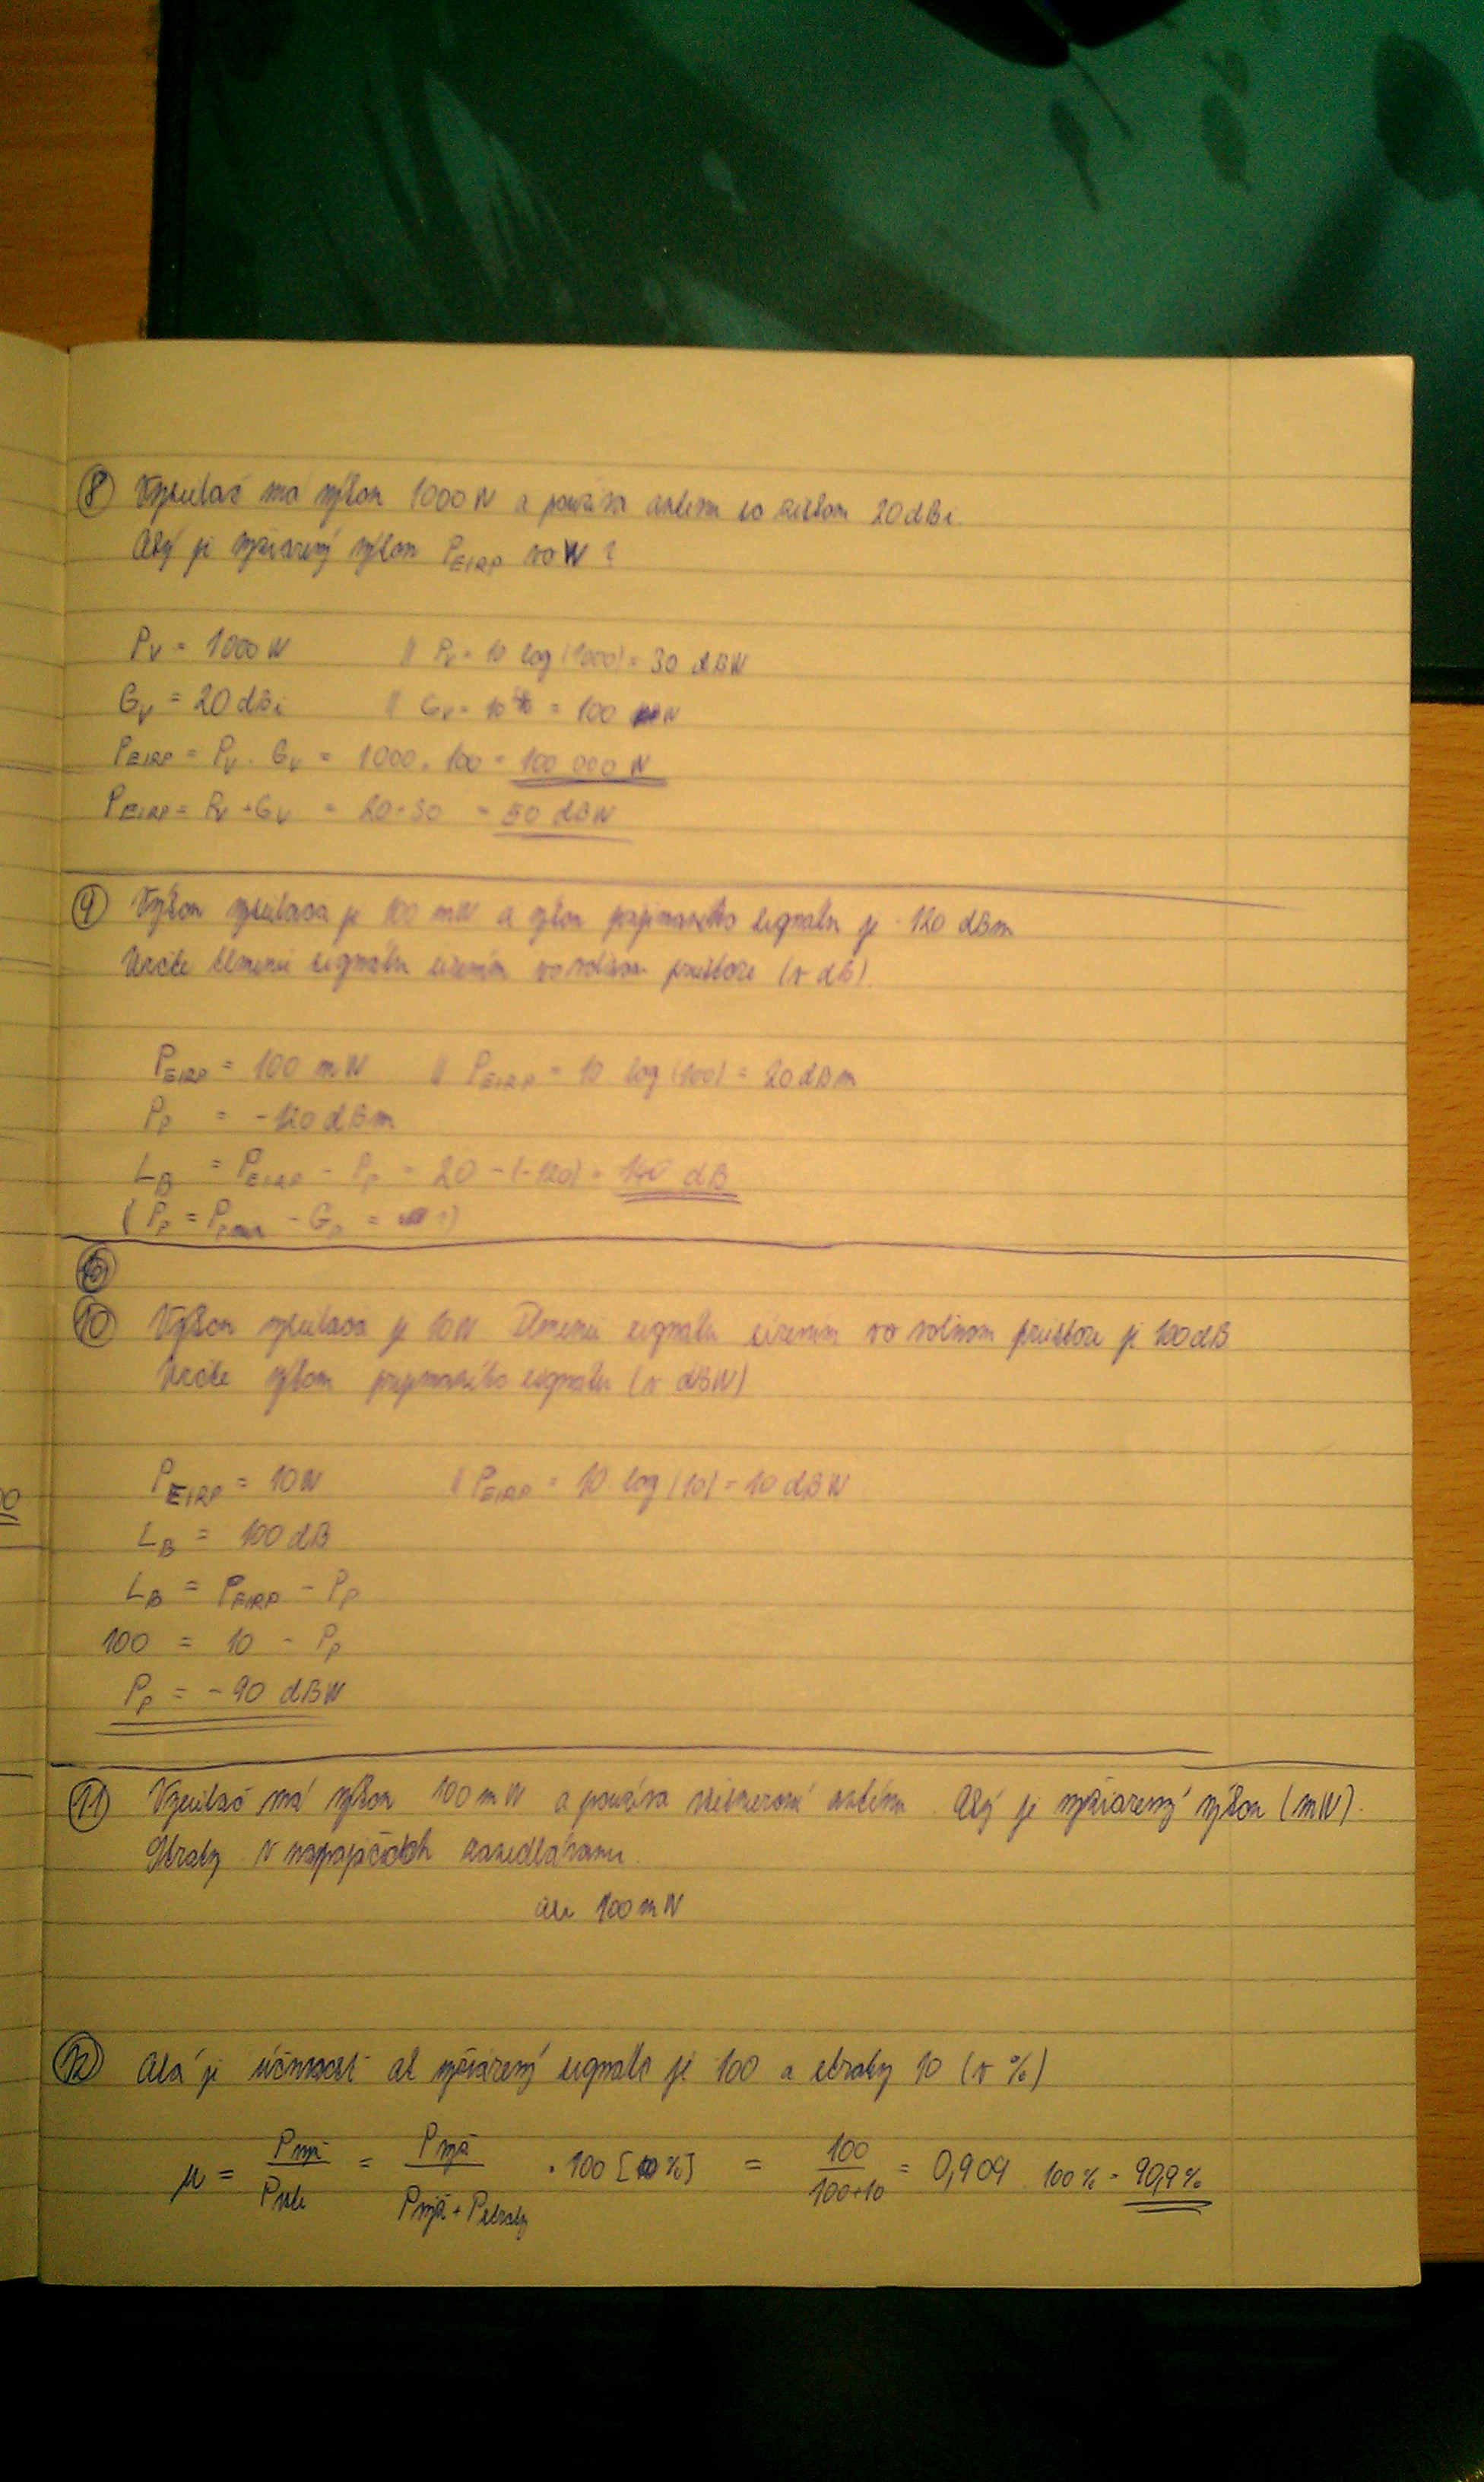 8 Vysielač má výkon 1000 W a používa anténu so ziskom 20 dBi.
Aký je vyžiarený výkon PEIRP vo W ?
PV = 1000 W || PV = 10 log (1000) = 30 dBW
GV = 20 dBi || GV = = 100 W
PEIRP = PV . GV = 1000 . 100 = 100 000 W
PEIRP = PV + GV = 20+30 = 50 dBW
9 Výkon vysielača je 100 mW a výkon prijímaného signálu je -120 dBm
Určte tlmenie signálu šírením vo voľnom priestore (v dB).
PEIRP = 100 mW || PEIRP = 10 log (100) = 20 dBm
PP = -120 dBm
LB = PEIRP - PP = 20 - (-120) = 140 dB
( PP = - GP = )
10 Výkon vysielača je 10W Tlmenie signálu šírením vo voľnom priestore je 100 dB
Určte výkon prijímaného signálu (v dBW)
PEIRP = 10 W || PEIRP = 10 . log (10) = 10 dBW
LB = 100 dB
LB = PEIRP - PP
100 = 10 - PP
PP = -90 dBW
11 Vysielač má výkon 100 mW a používa všesmerovú anténu. Aký je vyžiarený výkon (mW).
Straty v napájačoch zanedbávame.
100 mW
12 Aká je účinnosť ak vyžiarený signál je 100 a straty 10 (v %)
μ = Pvyž = Pvyž . 100 [%] = 100 = 0,909 . 100 % = 90,9 %
Pvyž + Pstraty 100+10